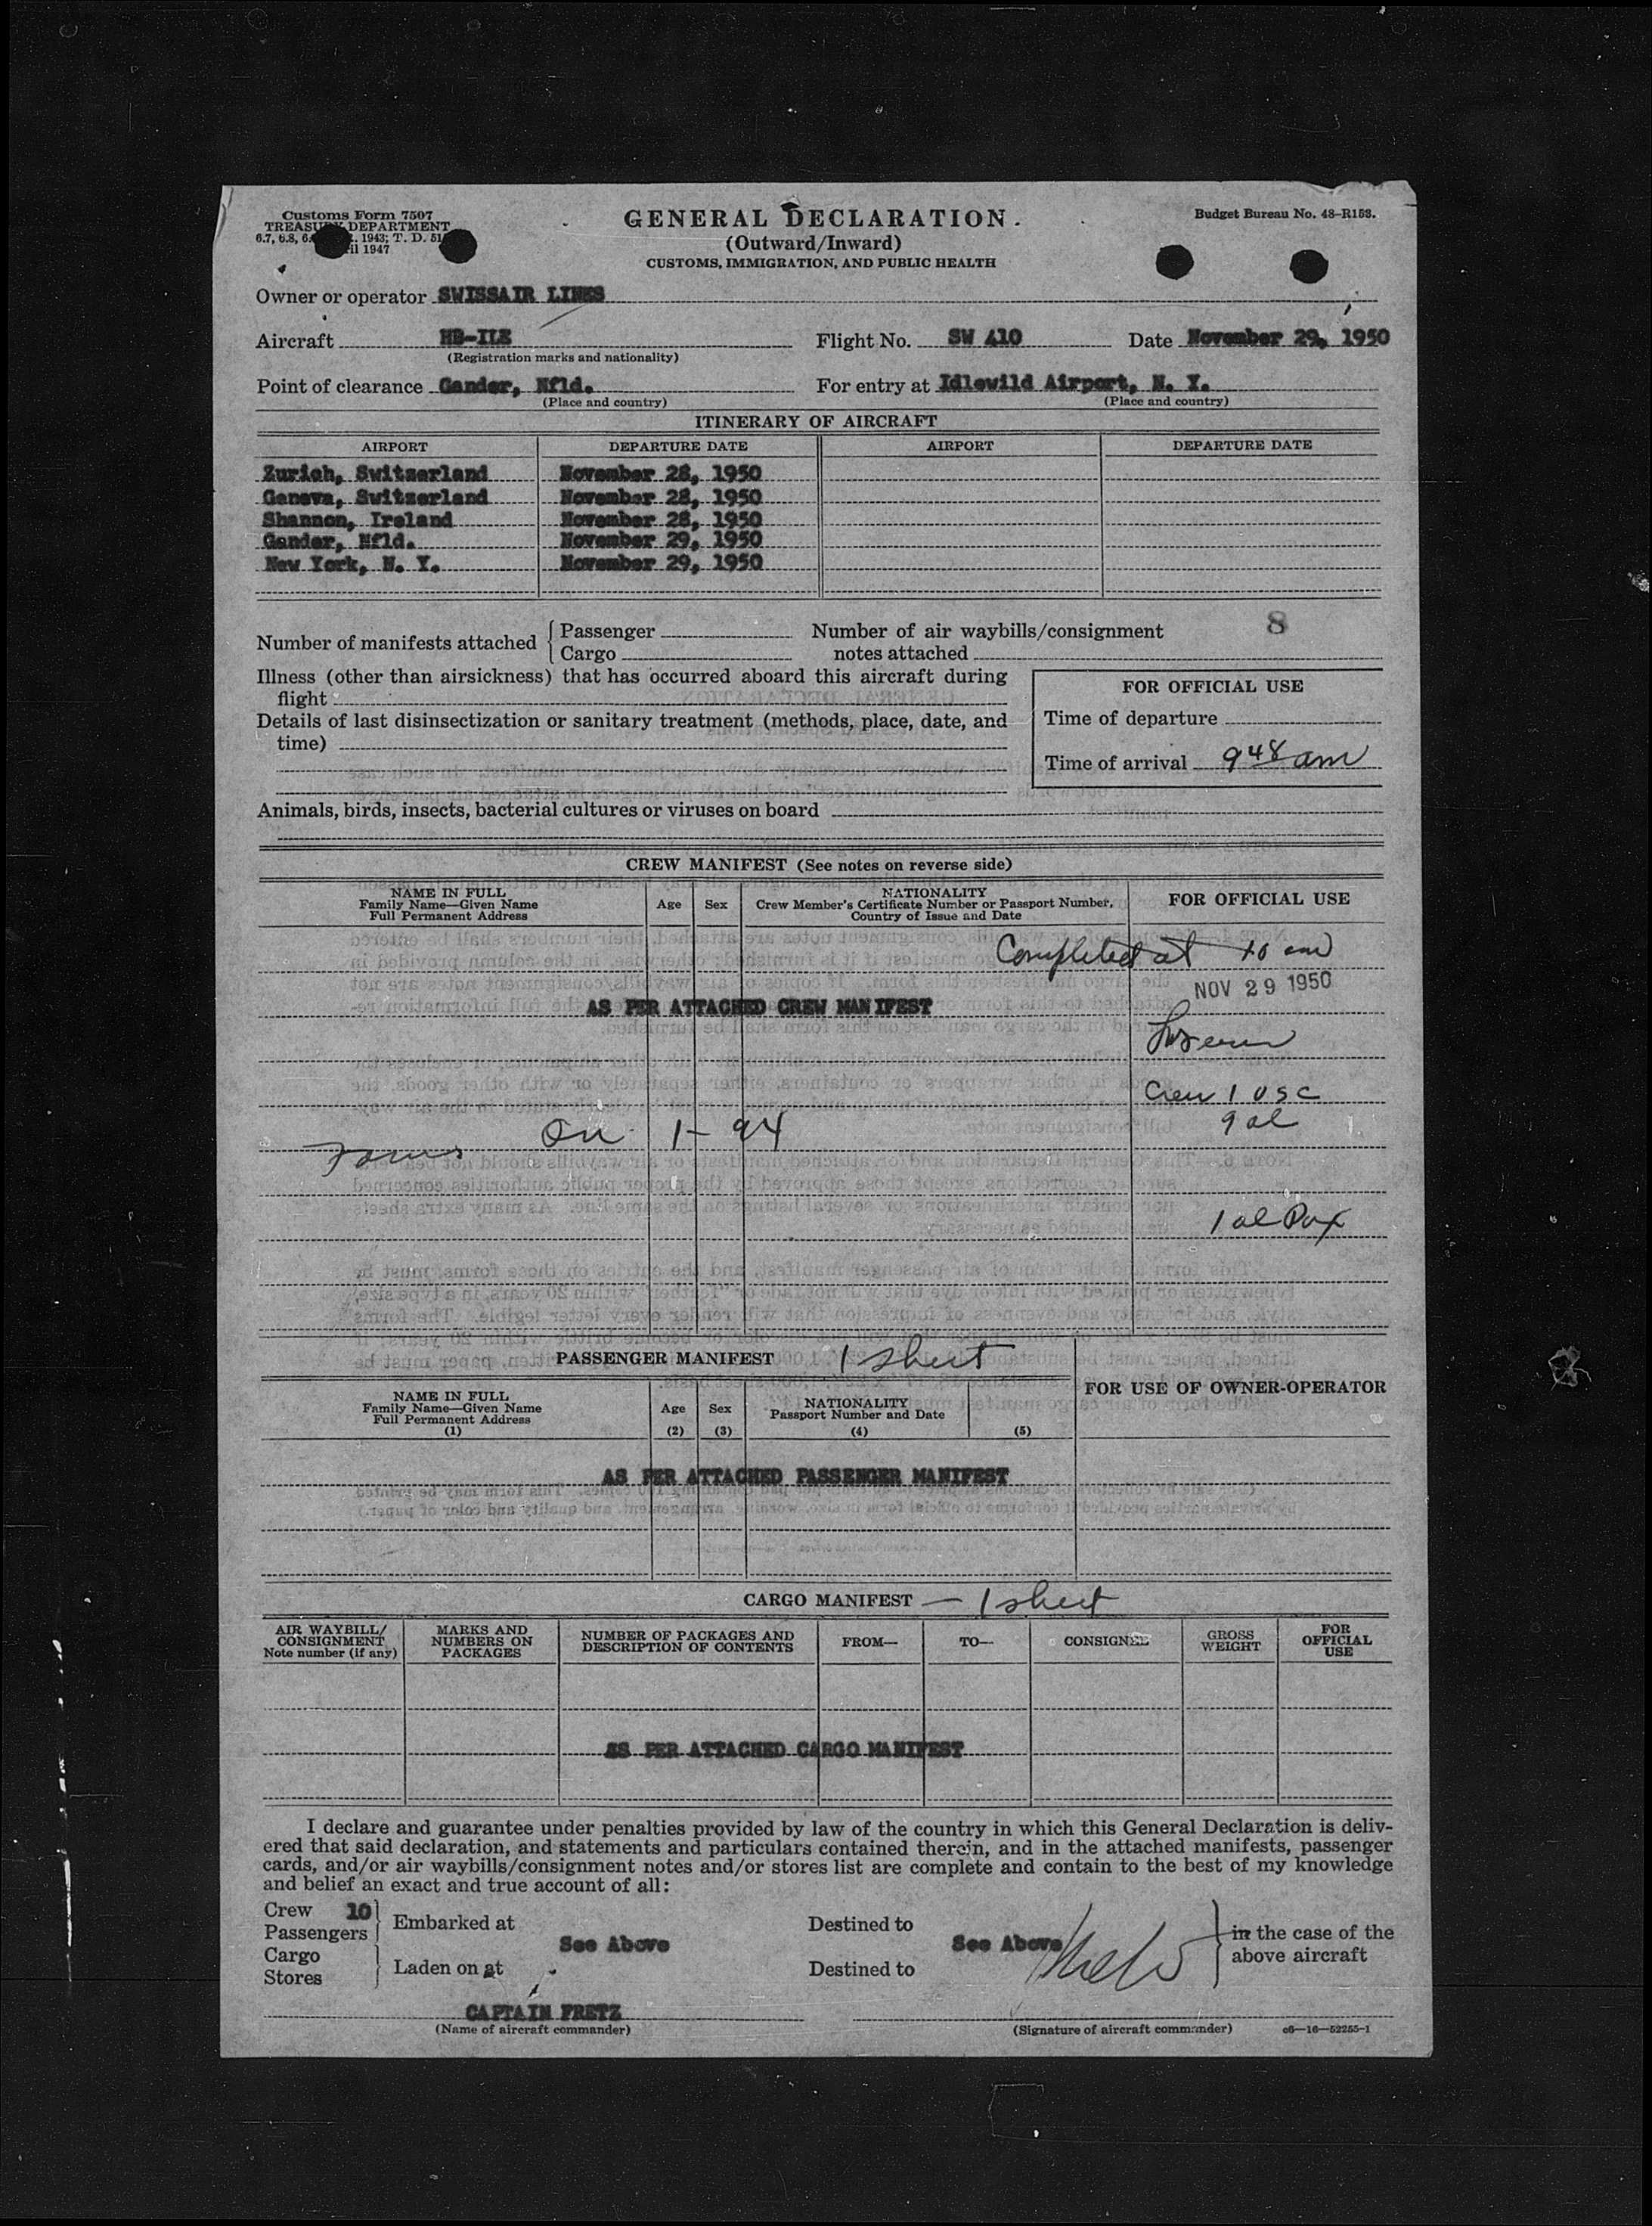 Customs Form 7507
TREASURY DEPARTMENT
1943; T. D.
1947
GENERAL DECLARATION
(Outward/Inward)
CUSTOMS, IMMIGRATION, AND PUBLIC HEALTH
Budget Bureau No. 48-R158.
Owner or operator SWISSAIR LINES
Aircraft HB-ILE Flight No. SW 410 Date November 29, 1950
(Registration marks and nationality)
Point of clearance Gander, Nfld. For entry at Idlewild Airport, N. Y.
(Place and country) (Place and country)
ITINERARY OF AIRCRAFT
AIRPORT DEPARTURE DATE AIRPORT DEPARTURE DATE
Zurich, Switzerland November 28, 1950
Geneva, Switzerland November 28, 1950
Shannon, Ireland November 28, 1950
Gander, Nfld. November 29, 1950
New York, N. Y. November 29, 1950
8
Number of manifests attached { Passenger Number of air waybills/consignment
Cargo notes attached
Illness (other than airsickness) that has occurred aboard this aircraft during
flight
Details of last disinsectization or sanitary treatment (methods, place, date, and
time)
FOR OFFICIAL USE
Time of departure
Time of arrival 9 48 am
Animals, birds, insects, bacterial cultures or viruses on board
CREW MANIFEST (See notes on reverse side)
NAME IN FULL
Family Name—Given Name
Full Permanent Address
Age Sex
NATIONALITY
Crew Member's Certificate Number or Passport Number,
Country of Issue and Date
FOR OFFICIAL USE
Completed at 10 am
NOV 29 1950
AS PER ATTACHED CREW MANIFEST
Crew 1 USC
9 al
On 1-94
1 al Pax
PASSENGER MANIFEST 1 sheet
NAME IN FULL
Family Name—Given Name
Full Permanent Address
(1)
Age
(2)
Sex
(3)
NATIONALITY
Passport Number and Date
(4)
(5)
FOR USE OF OWNER-OPERATOR
AS PER ATTACHED PASSENGER MANIFEST
CARGO MANIFEST — 1 sheet
AIR WAYBILL/
CONSIGNMENT
Note number (if any)
MARKS AND
NUMBERS ON
PACKAGES
NUMBER OF PACKAGES AND
DESCRIPTION OF CONTENTS
FROM—
TO—
CONSIGNEE
GROSS
WEIGHT
FOR
OFFICIAL
USE
AS PER ATTACHED CARGO MANIFEST
I declare and guarantee under penalties provided by law of the country in which this General Declaration is deliv-
ered that said declaration, and statements and particulars contained therein, and in the attached manifests, passenger
cards, and/or air waybills/consignment notes and/or stores list are complete and contain to the best of my knowledge
and belief an exact and true account of all:
Crew 10
Passengers
Embarked at Destined to
See Above See Above
Cargo
Stores
Laden on at Destined to
in the case of the
above aircraft
CAPTAIN FRETZ
(Name of aircraft commander) (Signature of aircraft commander) c6—16—52255-1